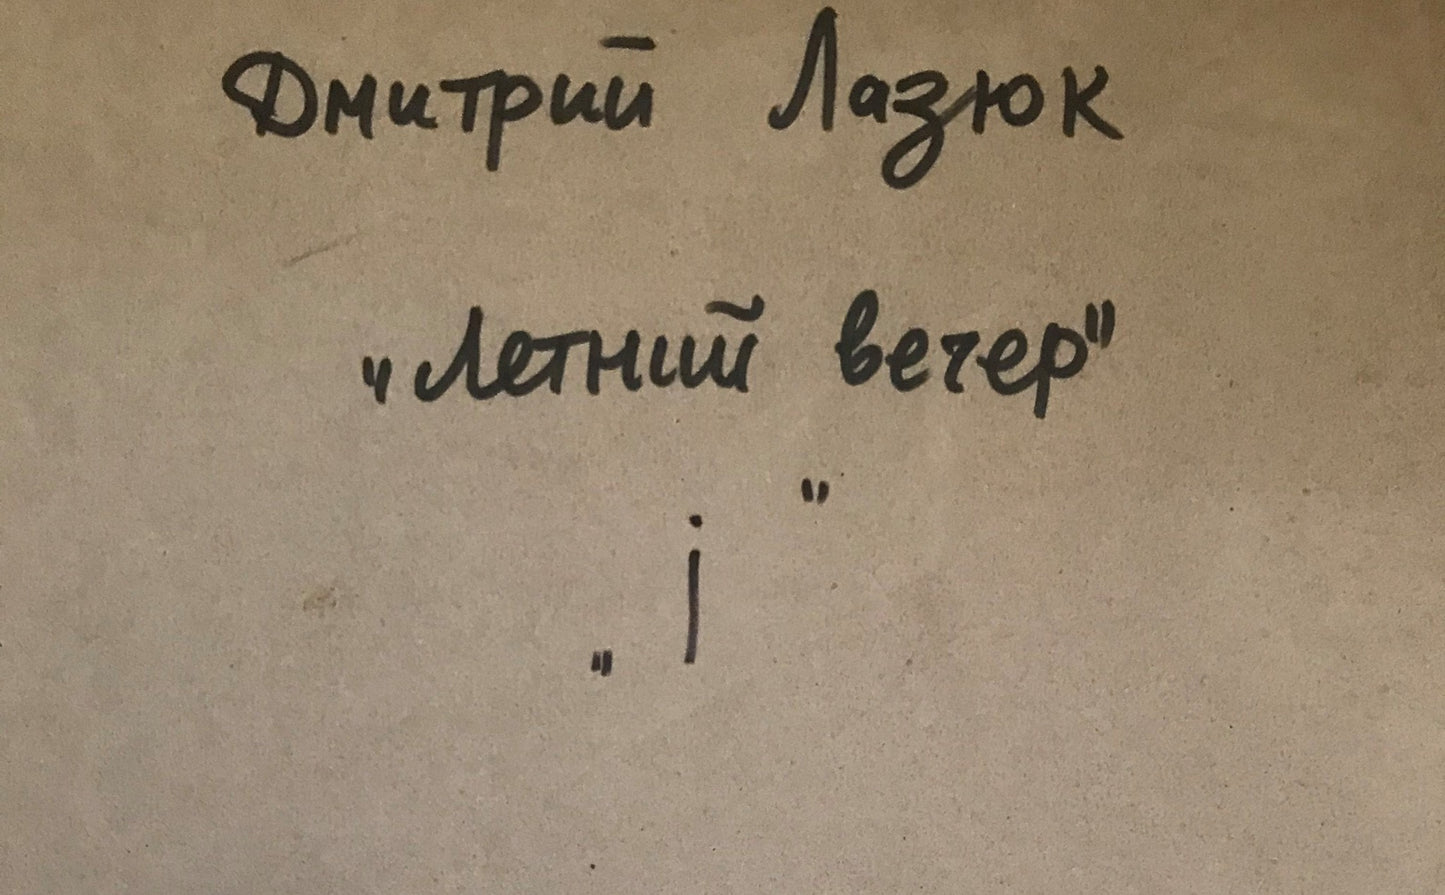 Дмитрий Лазюк
„Летний вечер"
„i"